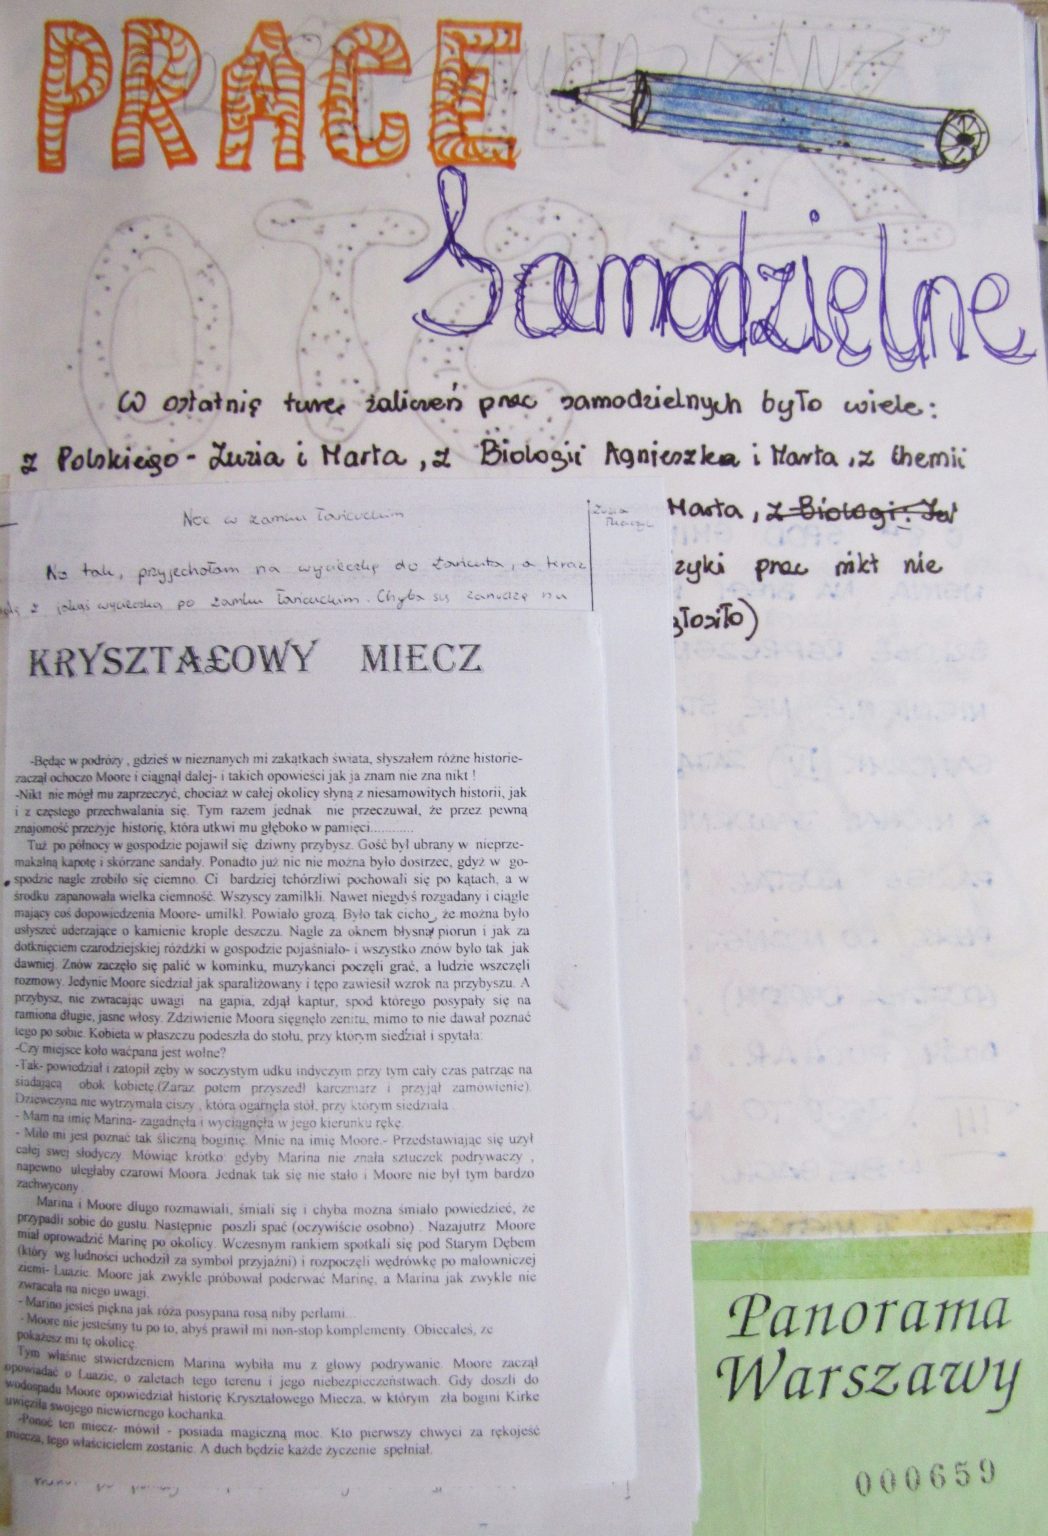 PRACE
Samodzielne
W ostatnię turę zaliczeń prac samodzielnych było wiele:
z Polskiego - Zuzia i Marta, z Biologii Agnieszka i Marta, z Chemii
Marta, z Biologi:
zyki prac nikt nie
głosiło)
Noc w zamku Łańcuckim
Zuzia
No tak, przyjechałam na wycieczkę do Łańcuta, a teraz
z jakąś wycieczką po zamku Łańcuckim. Chyba się zanudzę na
KRYSZTA£OWY MIECZ
-Będąc w podróży , gdzieś w nieznanych mi zakątkach świata, słyszałem różne historie-
zaczął ochoczo Moore i ciągnął dalej- i takich opowieści jak ja znam nie zna nikt !
-Nikt nie mógł mu zaprzeczyć, chociaż w całej okolicy słyną z niesamowitych historii, jak
i z częstego przechwalania się. Tym razem jednak nie przeczuwał, że przez pewną
znajomość przeżyje historię, która utkwi mu głęboko w pamięci............
Tuż po północy w gospodzie pojawił się dziwny przybysz. Gość był ubrany w nieprze-
makalną kapotę i skórzane sandały. Ponadto już nic nie można było dostrzec, gdyż w go-
spodzie nagle zrobiło się ciemno. Ci bardziej tchórzliwi pochowali się po kątach, a w
środku zapanowała wielka ciemność. Wszyscy zamilkli. Nawet niegdyś rozgadany i ciągle
mający coś dopowiedzenia Moore- umilkł. Powiało grozą. Było tak cicho, że można było
usłyszeć uderzające o kamienie krople deszczu. Nagle za oknem błysnął piorun i jak za
dotknięciem czarodziejskiej różdżki w gospodzie pojaśniało- i wszystko znów było tak jak
dawniej. Znów zaczęło się palić w kominku, muzykanci poczęli grać, a ludzie wszczęli
rozmowy. Jedynie Moore siedział jak sparaliżowany i tępo zawiesił wzrok na przybyszu. A
przybysz, nie zwracając uwagi na gapia, zdjął kaptur, spod którego posypały się na
ramiona długie, jasne włosy. Zdziwienie Moora sięgnęło zenitu, mimo to nie dawał poznać
tego po sobie. Kobieta w płaszczu podeszła do stołu, przy którym siedział i spytała:
-Czy miejsce koło waćpana jest wolne?
-Tak- powiedział i zatopił zęby w soczystym udku indyczym przy tym cały czas patrząc na
siadającą obok kobietę.(Zaraz potem przyszedł karczmarz i przyjął zamówienie).
Dziewczyna nie wytrzymała ciszy , która ogarnęła stół, przy którym siedziała.
- Mam na imię Marina- zagadnęła i wyciągnęła w jego kierunku rękę.
- Miło mi jest poznać tak śliczną boginię. Mnie na imię Moore.- Przedstawiając się użył
całej swej słodyczy. Mówiąc krótko: gdyby Marina nie znała sztuczek podrywaczy ,
napewno uległaby czarowi Moora. Jednak tak się nie stało i Moore nie był tym bardzo
zachwycony.
Marina i Moore długo rozmawiali, śmiali się i chyba można śmiało powiedzieć, że
przypadli sobie do gustu. Następnie poszli spać (oczywiście osobno) . Nazajutrz Moore
miał oprowadzić Marinę po okolicy. Wczesnym rankiem spotkali się pod Starym Dębem
(który wg ludności uchodził za symbol przyjaźni) i rozpoczęli wędrówkę po malowniczej
ziemi- Luazie. Moore jak zwykle próbował poderwać Marinę, a Marina jak zwykle nie
zwracała na niego uwagi.
- Marino jesteś piękna jak róża posypana rosą niby perłami...
- Moore nie jesteśmy tu po to, abyś prawił mi non-stop komplementy. Obiecałeś, że
pokażesz mi tę okolicę.
Tym właśnie stwierdzeniem Marina wybiła mu z głowy podrywanie. Moore zaczął
opowiadać o Luazie, o zaletach tego terenu i jego niebezpieczeństwach. Gdy doszli do
wodospadu Moore opowiedział historię Kryształowego Miecza, w którym zła bogini Kirke
uwięziła swojego niewiernego kochanka.
-Ponoć ten miecz- mówił - posiada magiczną moc. Kto pierwszy chwyci za rękojeść
miecza, tego właścicielem zostanie. A duch będzie każde życzenie spełniał.
Panorama
Warszawy
000659